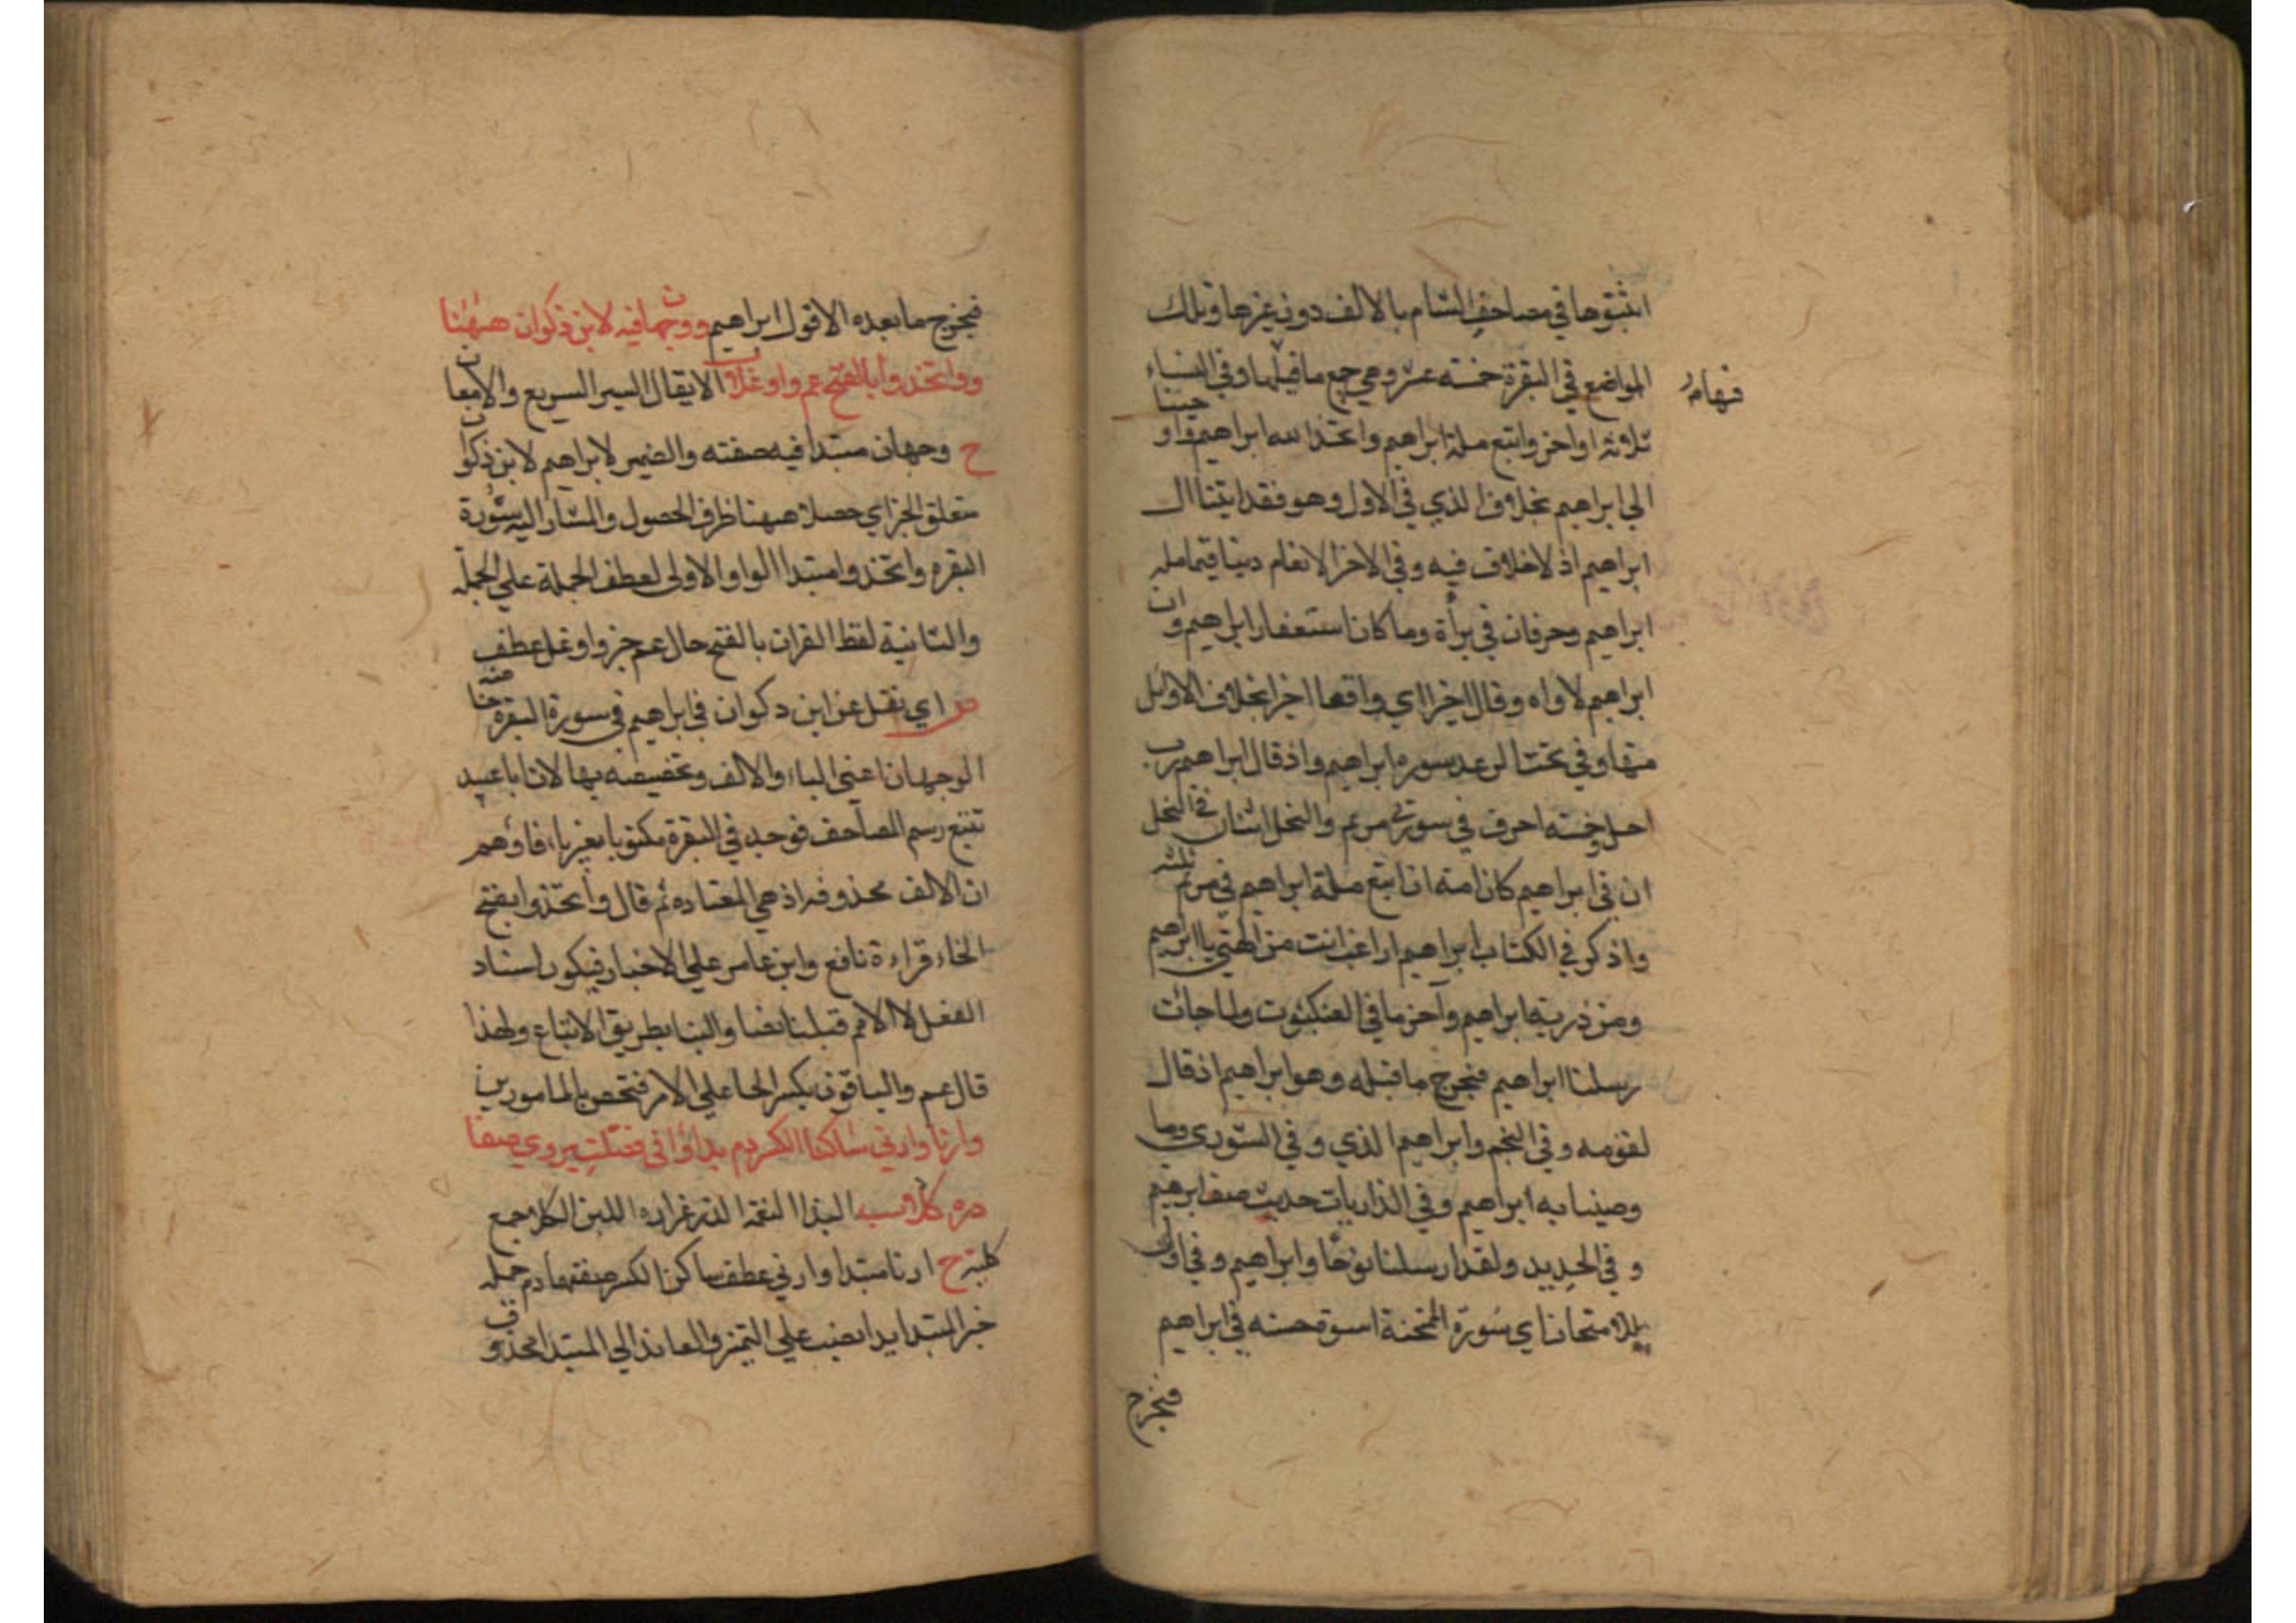 اثبتوها في مصاحف الشام بالالف دون غيرها وتلك
المواضع في البقرة خمسة عشر وهي جميع ما فيها وفي النساء
فيها م‍ر
ثلاثة اواخر واتبع ملة ابراهيم واتخذ الله ابراهيم واو حينا
الي ابراهيم بخلاف الذي في الاول وهو فقد اتينا ال
ابراهيم اذ لا خلاف فيه وفي الاخر الانعام دينا قيما ملة
ابراهيم وحرفان في براة وما كان استغفار ابراهيم وان
ابراهيم لاواه وقال اخرا اي واقعا اخرا بخلاف الاول
منها وفي تحت الرعد سورة ابراهيم واذ قال ابراهيم رب
اجعل وخمسة احرف في سورتي مريم والنحل اثنان في النحل
ان في ابراهيم كان امة ان اتبع ملة ابراهيم في مريم ثلثه
واذكر في الكتاب ابراهيم اراغب انت من الهتي يا ابراهيم
ومن ذرية ابراهيم وآخر ما في العنكبوت ولما جائت
رسلنا ابراهيم فيخرج ما قبله وهو ابراهيم اذ قال
لقومه وفي النجم وابراهيم الذي وفي الشوري وما
وصينا به ابراهيم وفي الذاريات حديث ضيف ابرهيم
و في الحديد ولقد ارسلنا نوحا وابراهيم وفي اول
الامتحان اي سورة الممتحنة اسوة حسنه في ابراهيم
فيخرج
فيخرج ما بعده الا قول ابراهيم ووجهان فيه لابن ذكوان ههنا
وواتخذوا بالفتح عم واوغلا ب الايغال السير السريع والامعان
ح وجهان مبتدا فيه صفته والضمير لابراهيم لابن ذكوان
متعلق الخبر اي حصلا ههنا ظرف الحصول والمشار اليه سورة
البقره واتخذوا مبتدا الواو الاولى لعطف الجملة علي الجملة
والثانية لفظ القران بالفتح حال عم خبر واوغل عطف
ص اي نقل عن ابن دكوان في ابراهيم في سورة البقرة هنا
الوجهان اعني الياء والالف وتخصيصه بها لان ابا عبيد
تتبع رسم المصاحف فوجد في البقرة مكتوبا بغير ياء فاوهم
ان الالف محذوفه اذ هي المعتاده ثم قال واتخذوا بفتح
الخاء قراءة نافع وابن عامر علي الاخبار فيكون اسناد
الفعل لا الامم قبلنا نصا والينا بطريق الاتباع ولهذا
قال عم والباقون بكسر الخا علي الامر فتختص بالمامورين
وارنا وارني ساكنا الكسر دم يدا وفي فصلت يروي صفا
دره كلا ب اليد النعمة الدر غزارة اللبن الكلا جمع
كلية ح ارنا مبتدا وارني عطف ساكن الكسر صفتها دم جمله
خبر المبتدا يدا نصب علي التميز والعائد الي المبتدا محذوف